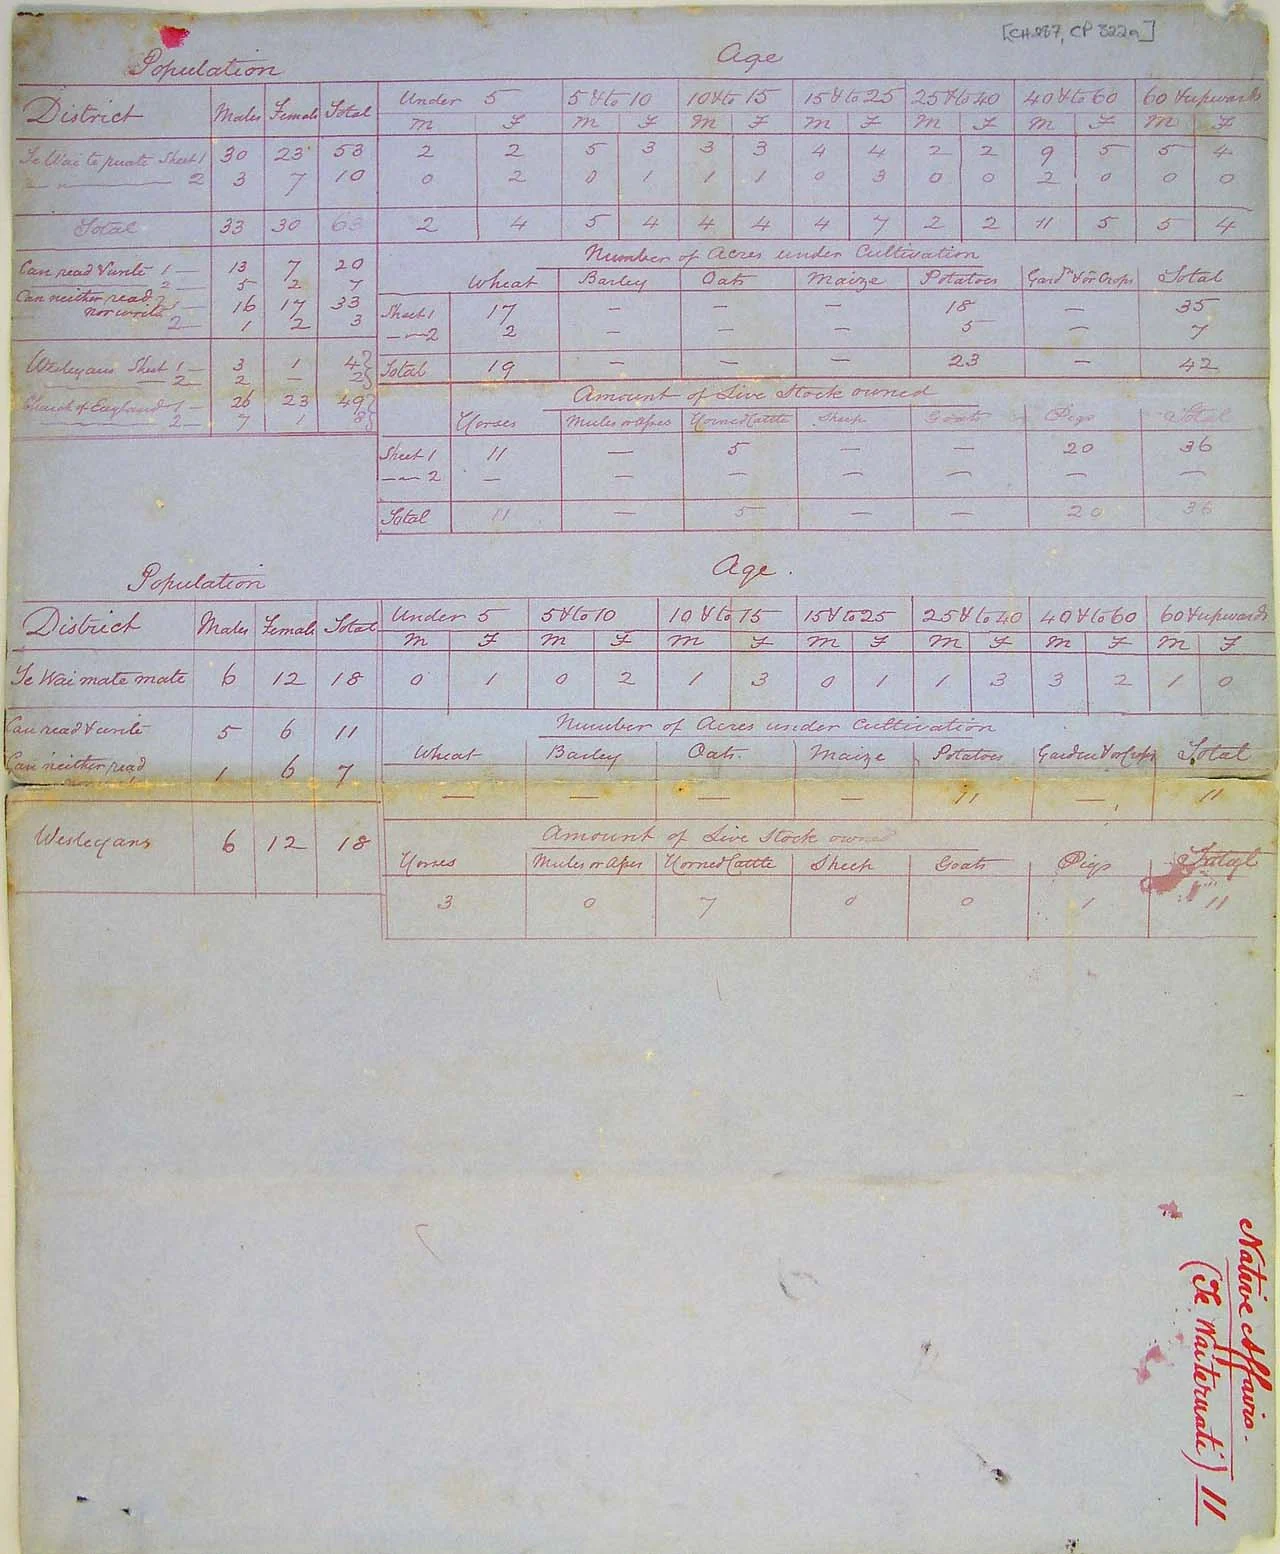 [CH 287, CP 322a]
Population
Age
District Males Female Total Under 5 5 & to 10 10 & to 15 15 & to 25 25 & to 40 40 & to 60 60 & upwards
M F M F M F M F M F M F M F
Te Wai te ruate Sheet 1 30 23 53 2 2 5 3 3 3 4 4 2 2 9 5 5 4
— " — 2 3 7 10 0 2 0 1 1 1 0 3 0 0 2 0 0 0
Total 33 30 63 2 4 5 4 4 4 4 7 2 2 11 5 5 4
Can read & write 1 — 13 7 20
2 — 5 2 7
Can neither read
nor write 1 — 16 17 33
2 — 1 2 3
Wesleyans Sheet 1 — 3 1 4
— 2 — 2 — 2
Church of England 1 — 26 23 49
2 — 7 1 8
Number of Acres under Cultivation
Wheat Barley Oats Maize Potatoes Gard.n & or Crops Total
Sheet 1 17 — — — 18 — 35
— " — 2 2 — — — 5 — 7
Total 19 — — — 23 — 42
Amount of Live Stock owned
Horses Mules or Asses Horned Cattle Sheep Goats Pigs Total
Sheet 1 11 — 5 — — 20 36
— " — 2 — — — — — — —
Total 11 — 5 — — 20 36
Population
Age.
District Males Female Total Under 5 5 & to 10 10 & to 15 15 & to 25 25 & to 40 40 & to 60 60 & upwards
M F M F M F M F M F M F M F
Te Wai mate mate 6 12 18 0 1 0 2 1 3 0 1 1 3 3 2 1 0
Can read & write 5 6 11
Can neither read
nor write 1 6 7
Wesleyans 6 12 18
Number of Acres under Cultivation
Wheat Barley Oats. Maize Potatoes Garden & or Crops Total
— — — — 11 — 11
Amount of Live Stock owned
Horses Mules or Asses Horned Cattle Sheep Goats Pigs Total
3 0 7 0 0 1 11
Native Affairs.
(Te Waiteruati) 11